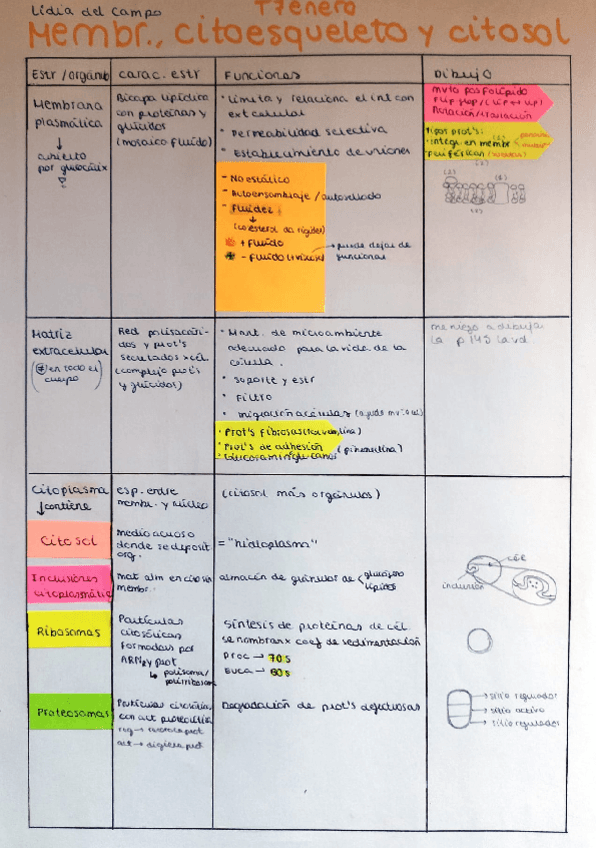 Lidia del Campo
T7 enero
Membr., citoesqueleto y citosol
Estr/orgánulo
carac. estr
Funciones
Dibujo
Membrana
plasmática
cubierto
por glucocálix
Bicapa lipídica
con proteínas y
glúcidos
(mosaico fluido)
• Limita y relaciona el int con
ext celular
• Permeabilidad selectiva
• Establecimiento de uniones
- No estático
- Autoensamblaje / autosellado
- Fluidez
(colesterol da rigidez)
+ fluido
- Fluido
puede dejar de
funcionar
mvto fosfolípido
Flip flop
Rotación/traslación
Tipos prot's:
• Integr. en membr
• periféricas
Matriz
extracelular
(≠ en todo el
cuerpo)
Red polisacári-
dos y prot's
secretados x cél.
(complejo prot's
y glúcidos)
• Mant. de microambiente
adecuado para la vida de la
célula.
• Soporte y estr
• Filtro
• migración células
• Prot's fibrosas
• Prot's de adhesión (fibronectina)
me niego a dibujar
la p 145 la vd.
Citoplasma
↓contiene
esp. entre
membr. y núcleo
(citosol más orgánulos)
Citosol
medio acuoso
donde se deposit
org.
= "hialoplasma"
Inclusiones
citoplasmátic
mat alm en citosin
membr.
almacén de gránulos de
glucógeno
lípidos
inclusión
cél
Ribosomas
Partículas
citosólicas
formadas por
ARNr y prot
↳ polisoma/
polirribosoma
Síntesis de proteínas de cél
se nombran x coef de sedimentación
Proc → 70 s
Euca → 80 s
Proteosomas
Partículas citosólicas
con act proteolítica
reg → reconoce prot
act → digiere prot
Degradación de prot's defectuosas
→ sitio regulador
→ sitio activo
→ sitio regulador